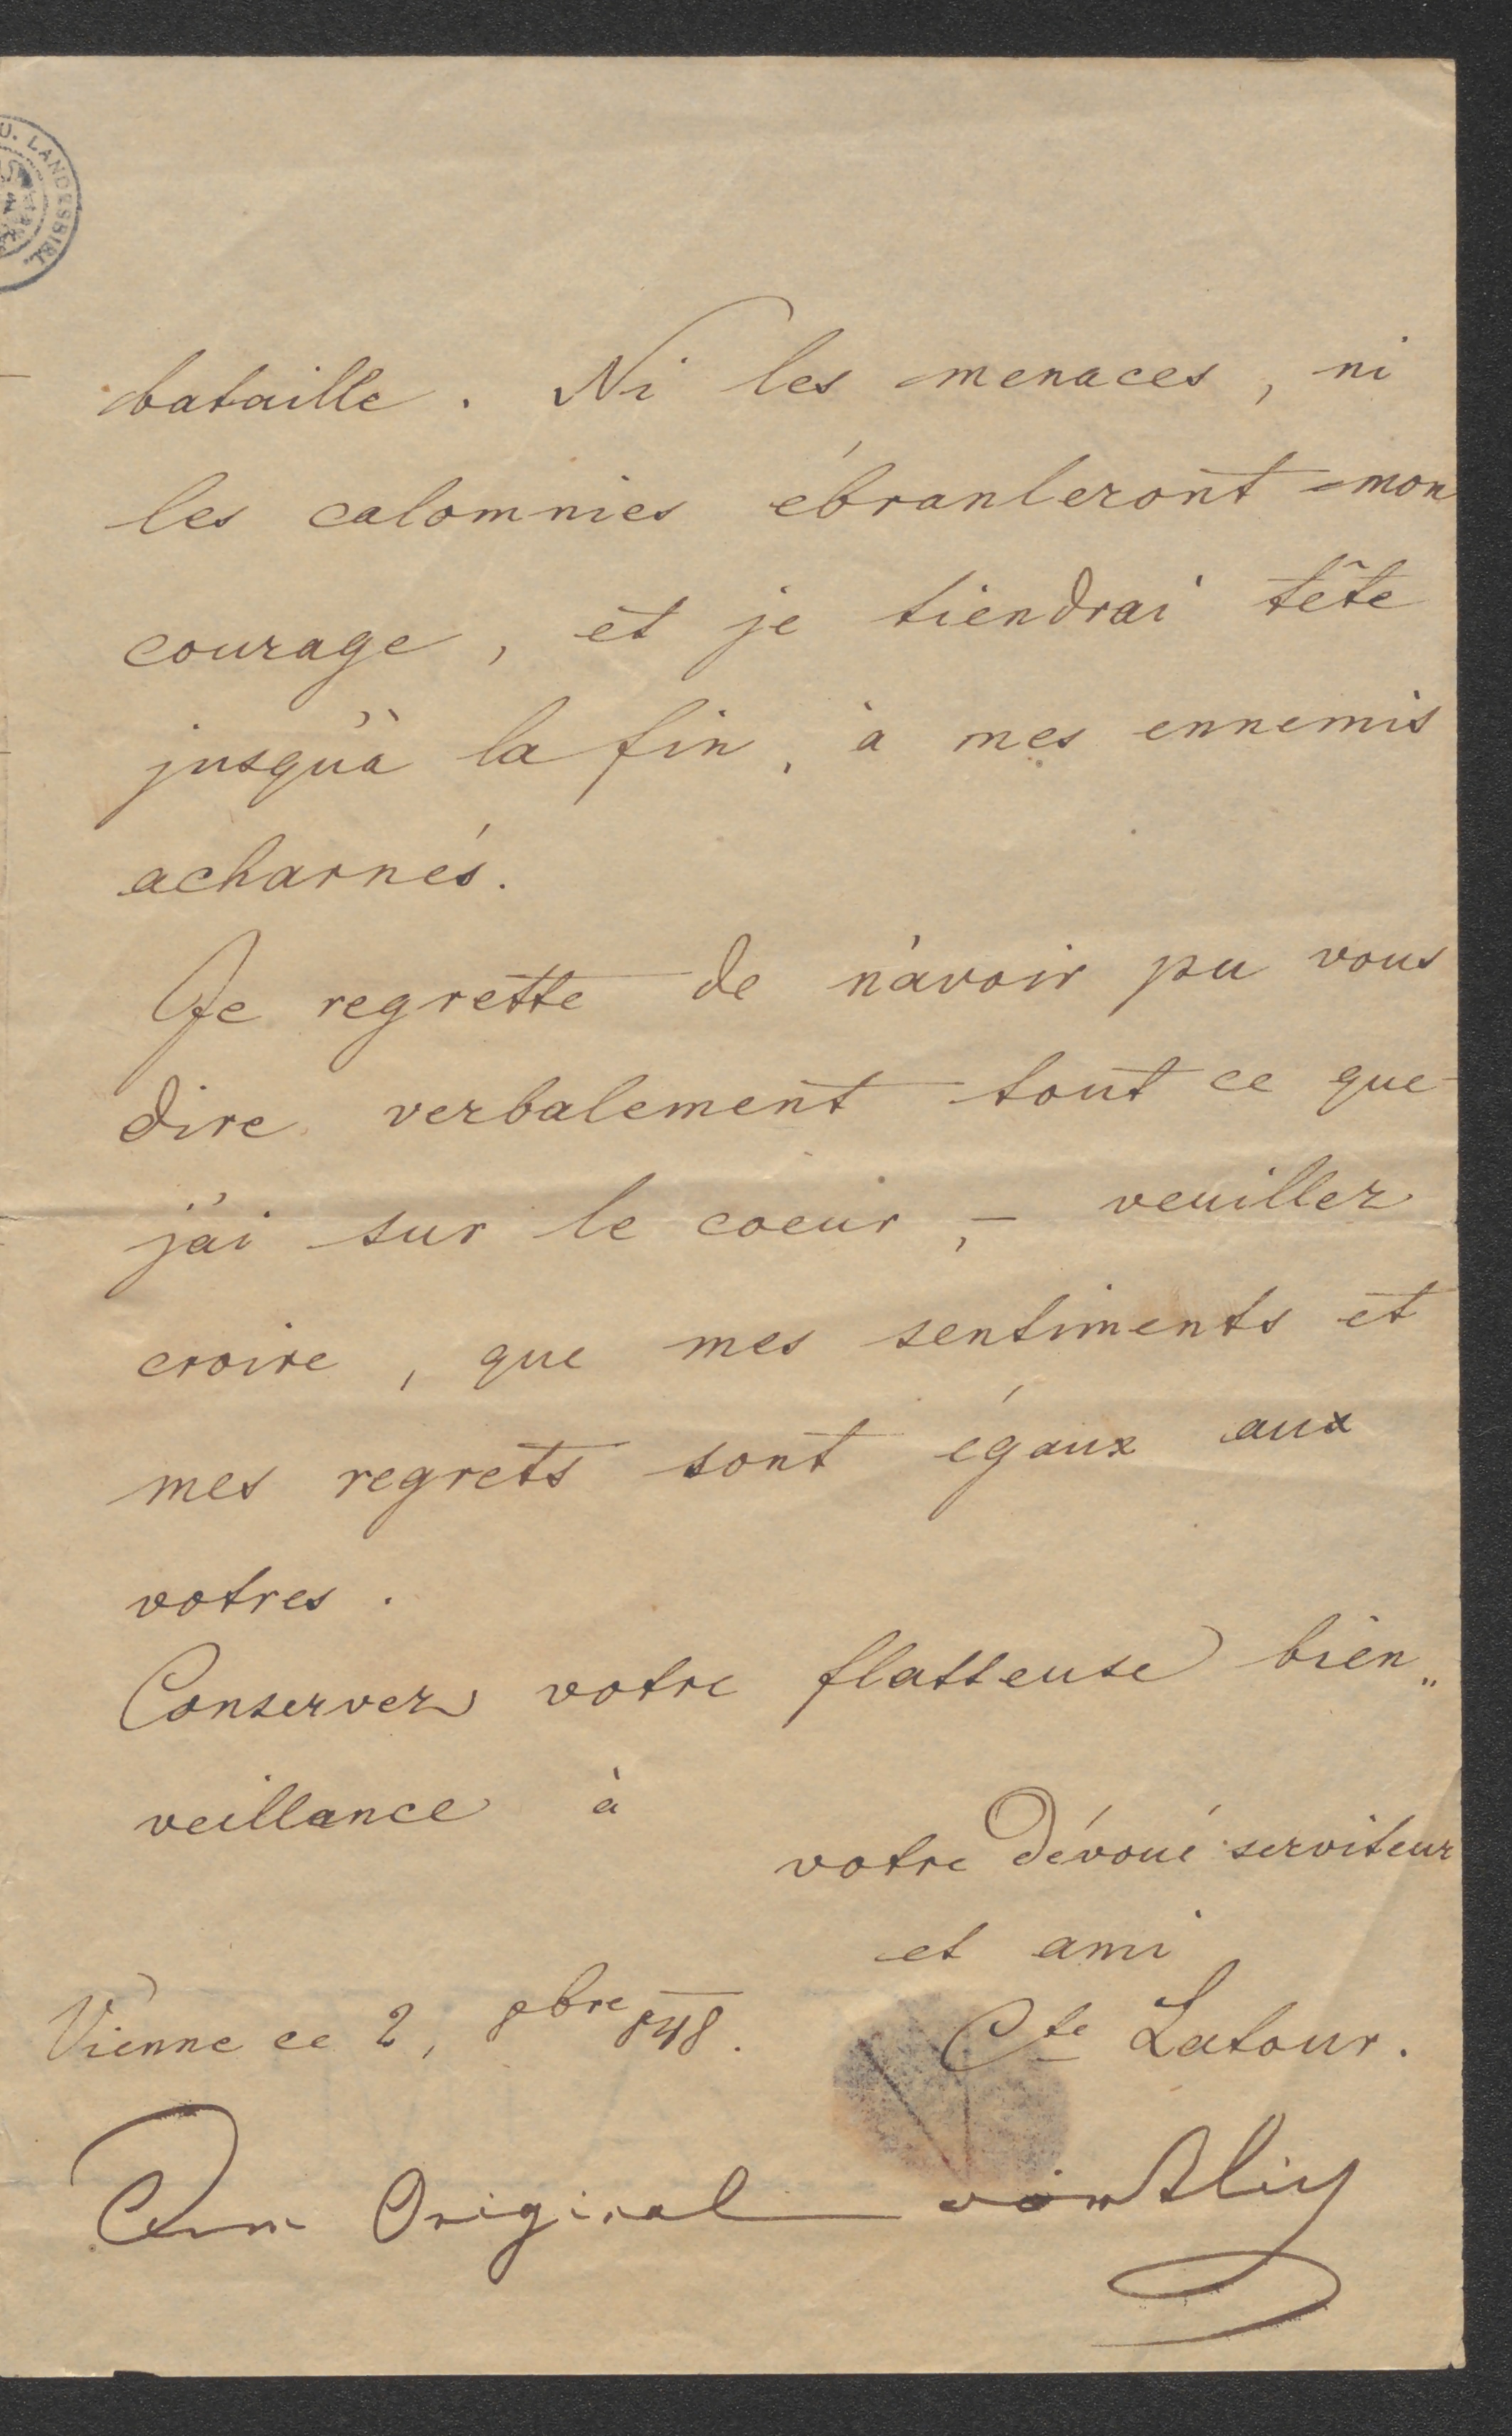 U. LANDESBIBL.
bataille. Ni les menaces, ni
les calomnies ébranleront mon
courage, et je tiendrai tête
jusqu'à la fin, à mes ennemis
acharnés.
Je regrette de n'avoir pu vous
dire verbalement tout ce que
j'ai sur le coeur, – veuillez
croire, que mes sentiments et
mes regrets sont égaux aux
votres.
Conservez votre flatteuse bien„
veillance à
votre dévoué serviteur
et ami
Vienne ce 2, 8bre 848. Cte Latour.
Original